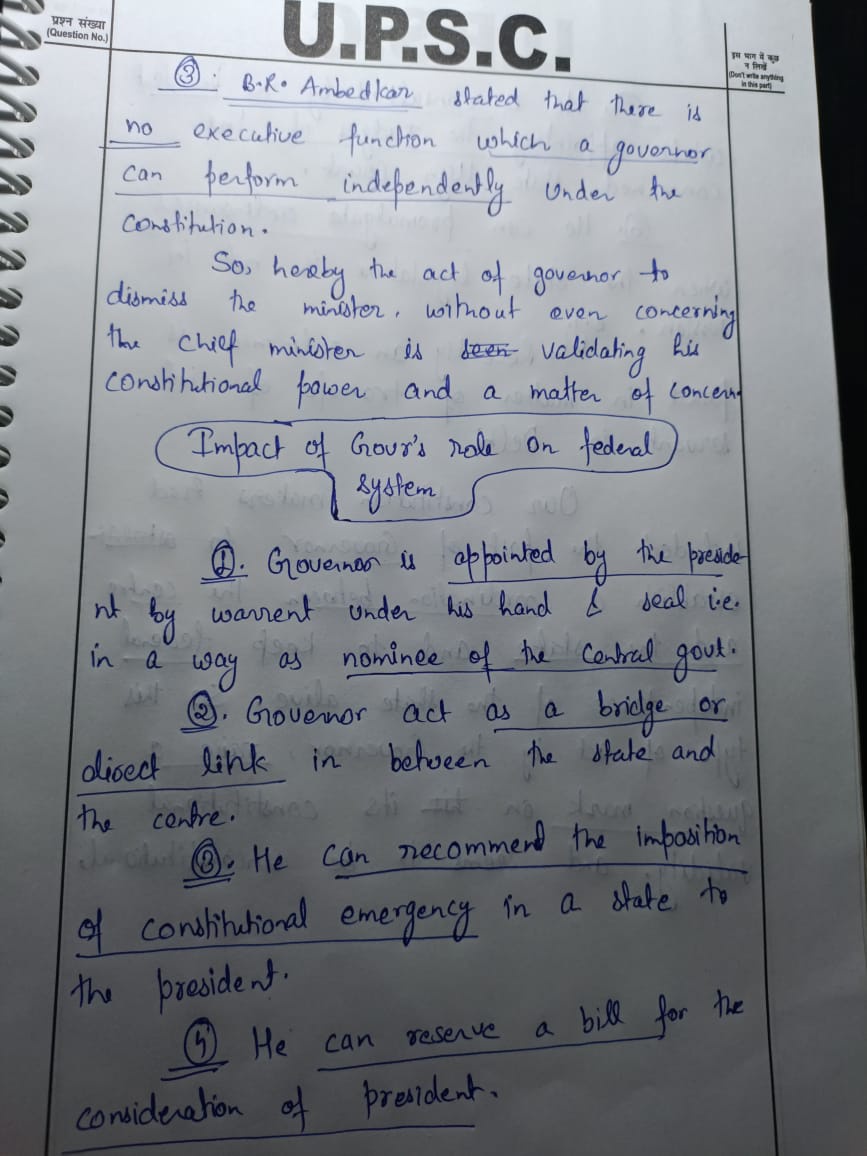 प्रश्न संख्या
(Question No.)
U.P.S.C.
इस भाग में कुछ
न लिखें
(Don't write anything
in this part)
③. B.R. Ambedkar stated that there is
no executive function which a governor
can perform independently under the
Constitution.
So, hereby the act of governor to
dismiss the minister, without even concerning
the chief minister is seen validating his
constitutional power and a matter of concern
Impact of Gour's role on federal
system
①. Governor is appointed by the preside-
nt by warrent under his hand & seal i.e.
in a way as nominee of the Central govt.
②. Governor act as a bridge or
direct link in between the state and
the centre.
③. He can recommend the imposition
of constitutional emergency in a state to
the president.
④ He can reserve a bill for the
consideration of president.